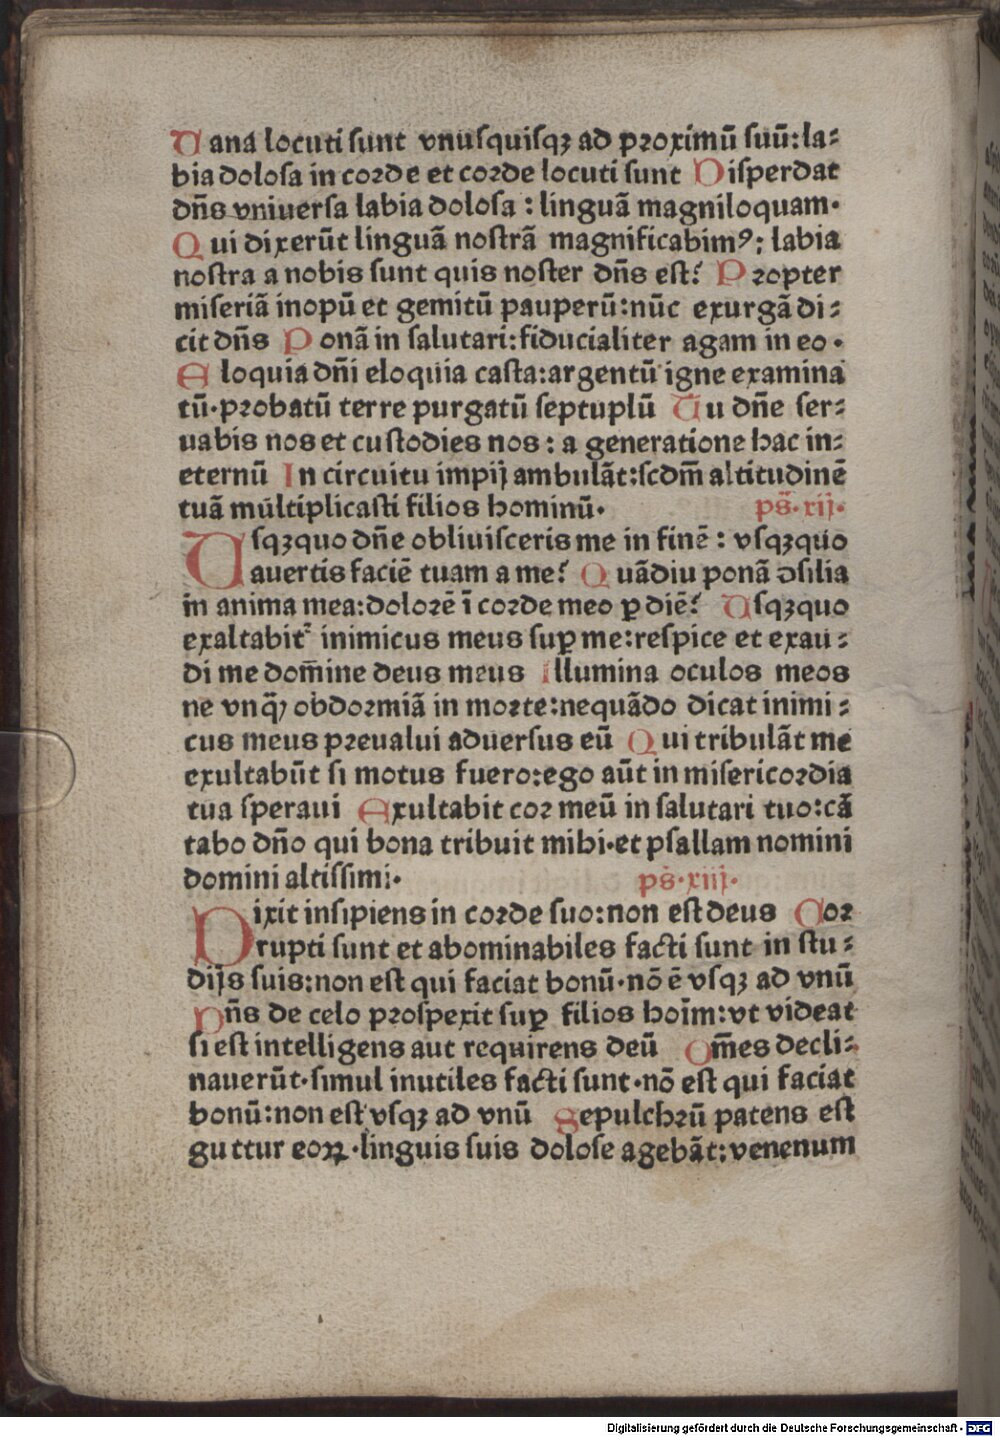 Uana locuti sunt vnusquisqꝫ ad proximū suū:la⸗
bia dolosa in corde et corde locuti sunt Disperdat
dñs vniuersa labia dolosa : linguā magniloquam.
Qui dixerūt linguā nostrā magnificabimꝰ; labia
nostra a nobis sunt quis noster dñs est? Propter
miseriā inopū et gemitū pauperū:nūc exurgā di⸗
cit dñs Ponā in salutari:fiducialiter agam in eo.
Eloquia dñi eloquia casta:argentū igne examina
tū.probatū terre purgatū septuplū Tu dñe ser⸗
uabis nos et custodies nos : a generatione hac in⸗
eternū In circuitu impij ambulāt:scdm̄ altitudinē
tuā multiplicasti filios hominū. ps̄.xij.
Usqꝫquo dñe obliuisceris me in finē : vsqꝫquo
auertis faciē tuam a me? Quādiu ponā ↄsilia
in anima mea:dolorē ī corde meo ꝑ diē? Usqꝫquo
exaltabit᷑ inimicus meus suꝑ me:respice et exau⸗
di me dom̄ine deus meus Illumina oculos meos
ne vnq̄ꝫ obdormiā in morte:nequādo dicat inimi⸗
cus meus preualui aduersus eū Qui tribulāt me
exultabūt si motus fuero:ego aūt in misericordia
tua speraui Exultabit cor meū in salutari tuo:cā
tabo dño qui bona tribuit mihi.et psallam nomini
domini altissimi. ps̄.xiij.
Dixit insipiens in corde suo:non est deus Cor
rupti sunt et abominabiles facti sunt in stu⸗
dijs suis:non est qui faciat bonū.nō ē vsqꝫ ad vnū
Dñs de celo prospexit suꝑ filios hoīm:vt videat
si est intelligens aut requirens deū Om̄es decli⸗
nauerūt.simul inutiles facti sunt.nō est qui faciat
bonū:non est vsqꝫ ad vnū Sepulchrū patens est
guttur eoꝝ.linguis suis dolose agebāt:venenum
Digitalisierung gefördert durch die Deutsche Forschungsgemeinschaft - DFG